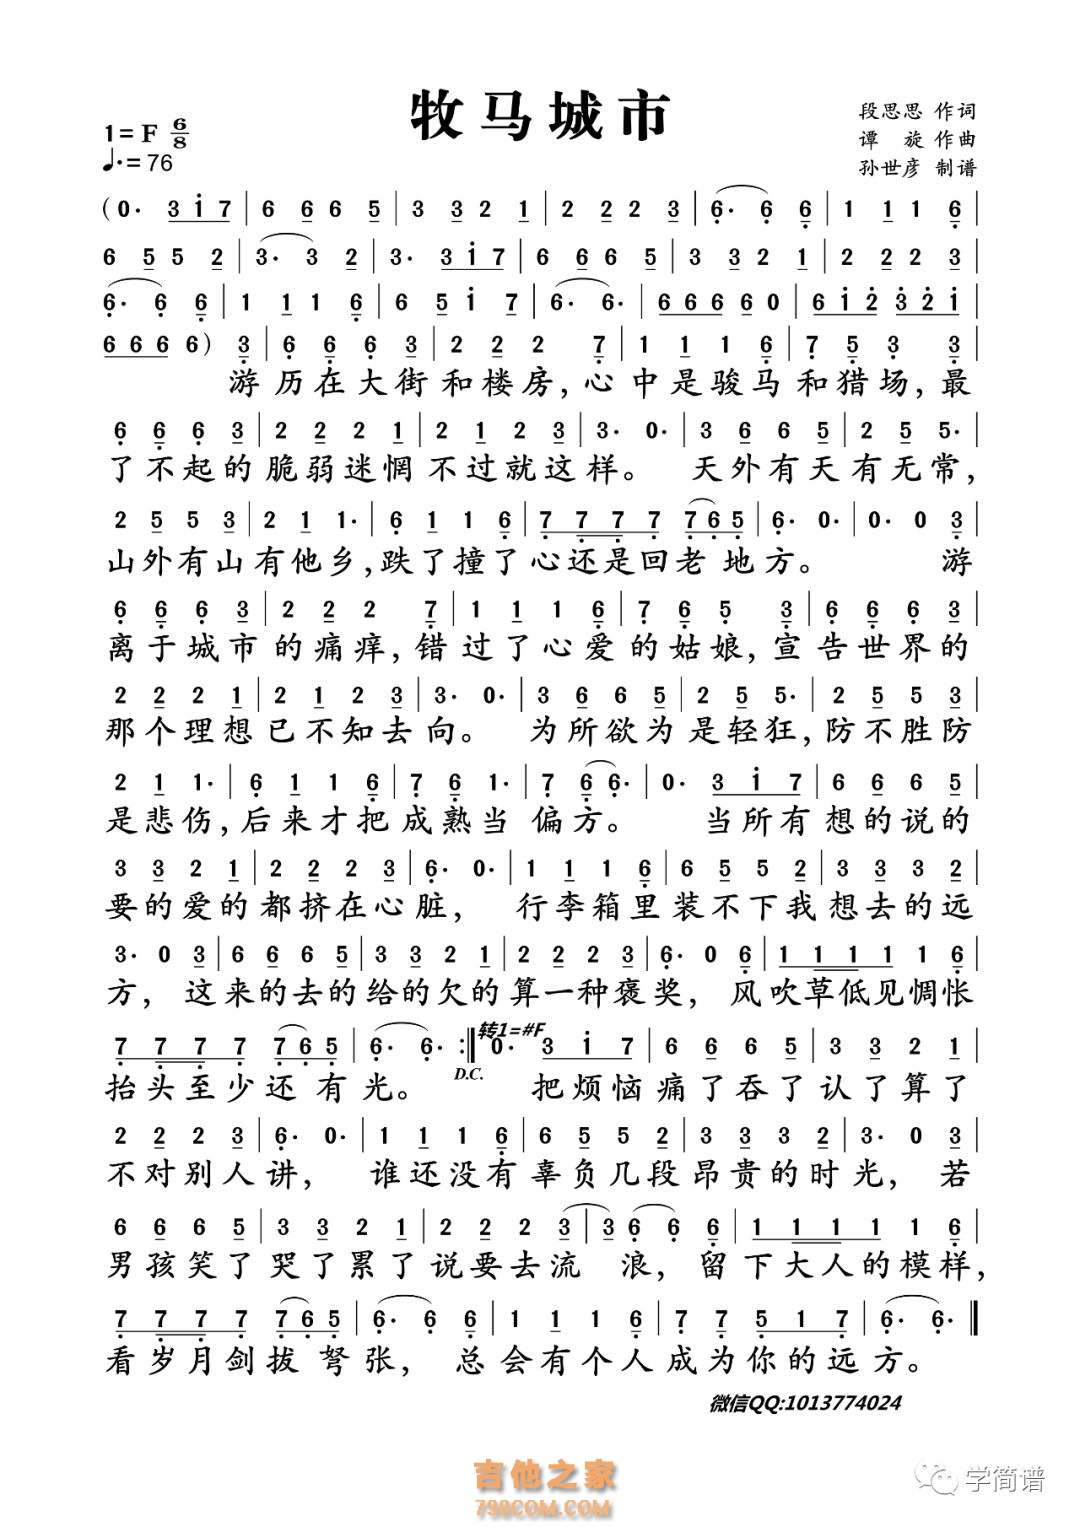 牧马城市
段思思 作词
1=F 6/8
谭 旋 作曲
♩.=76
孙世彦 制谱
(0· 3 i 7 | 6 6 6 5 | 3 3 2 1 | 2 2 2 3 | 6· 6 6 | 1 1 1 6 |
6 5 5 2 | 3· 3 2 | 3· 3 i 7 | 6 6 6 5 | 3 3 2 1 | 2 2 2 3 |
6· 6 6 | 1 1 1 6 | 6 5 i 7 | 6· 6· | 6 6 6 6 0 | 6 i 2 3 2 i |
6 6 6 6) 3 | 6 6 6 3 | 2 2 2 7 | 1 1 1 6 | 7 5 3 3 |
游历在大街和楼房,心中是骏马和猎场,最
6 6 6 3 | 2 2 2 1 | 2 1 2 3 | 3· 0· | 3 6 6 5 | 2 5 5· |
了不起的脆弱迷惘不过就这样。 天外有天有无常,
2 5 5 3 | 2 1 1· | 6 1 1 6 | 7 7 7 7 7 6 5 | 6· 0· | 0· 0 3 |
山外有山有他乡,跌了撞了心还是回老地方。 游
6 6 6 3 | 2 2 2 7 | 1 1 1 6 | 7 6 5 3 | 6 6 6 3 |
离于城市的痛痒,错过了心爱的姑娘,宣告世界的
2 2 2 1 | 2 1 2 3 | 3· 0· | 3 6 6 5 | 2 5 5· | 2 5 5 3 |
那个理想已不知去向。 为所欲为是轻狂,防不胜防
2 1 1· | 6 1 1 6 | 7 6 1· | 7 6 6· | 0· 3 i 7 | 6 6 6 5 |
是悲伤,后来才把成熟当偏方。 当所有想的说的
3 3 2 1 | 2 2 2 3 | 6· 0· | 1 1 1 6 | 6 5 5 2 | 3 3 3 2 |
要的爱的都挤在心脏, 行李箱里装不下我想去的远
3· 0 3 | 6 6 6 5 | 3 3 2 1 | 2 2 2 3 | 6· 0 6 | 1 1 1 1 1 6 |
方, 这来的去的给的欠的算一种褒奖, 风吹草低见惆怅
转1=#F
7 7 7 7 7 6 5 | 6· 6· :‖ 0· 3 i 7 | 6 6 6 5 | 3 3 2 1 |
D.C.
抬头至少还有光。 把烦恼痛了吞了认了算了
2 2 2 3 | 6· 0· | 1 1 1 6 | 6 5 5 2 | 3 3 3 2 | 3· 0 3 |
不对别人讲, 谁还没有辜负几段昂贵的时光, 若
6 6 6 5 | 3 3 2 1 | 2 2 2 3 | 3 6 6 6 | 1 1 1 1 1 6 |
男孩笑了哭了累了说要去流浪, 留下大人的模样,
7 7 7 7 7 6 5 | 6· 6 6 | 1 1 1 6 | 7 7 5 1 7 | 6· 6· ‖
看岁月剑拔弩张, 总会有个人成为你的远方。
微信QQ:1013774024
吉他之家
798COM.COM
学简谱